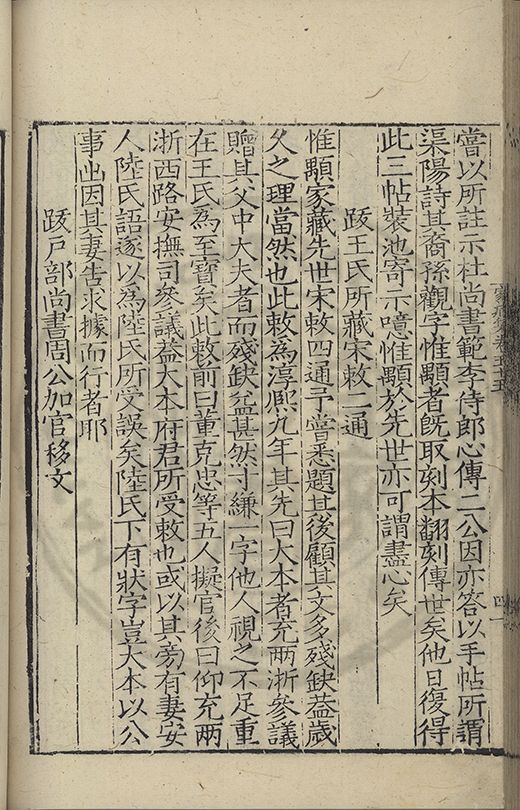 嘗以所註示杜尚書範李侍郎心傳二公因亦答以手帖所謂
渠陽詩其裔孫觀字惟顒者旣取刻本翻刻傳世矣他日復得
此三帖裝池寄示噫惟顒於先世亦可謂盡心矣
跋王氏所藏宋敕二通
惟顒家藏先世宋敕四通予嘗悉題其後顧其文多殘缺葢歲
久之理當然也此敕為淳熙九年其先曰大本者充兩浙參議
贈其父中大夫者而殘缺益甚然寸縑一字他人視之不足重
在王氏為至寶矣此敕前曰董克忠等五人擬官後曰仰充兩
浙西路安撫司參議葢大本府君所受敕也或以其旁有妻安
人陸氏語遂以為陸氏所受誤矣陸氏下有狀字豈大本以公
事出因其妻告求據而行者耶
跋戶部尚書周公加官移文